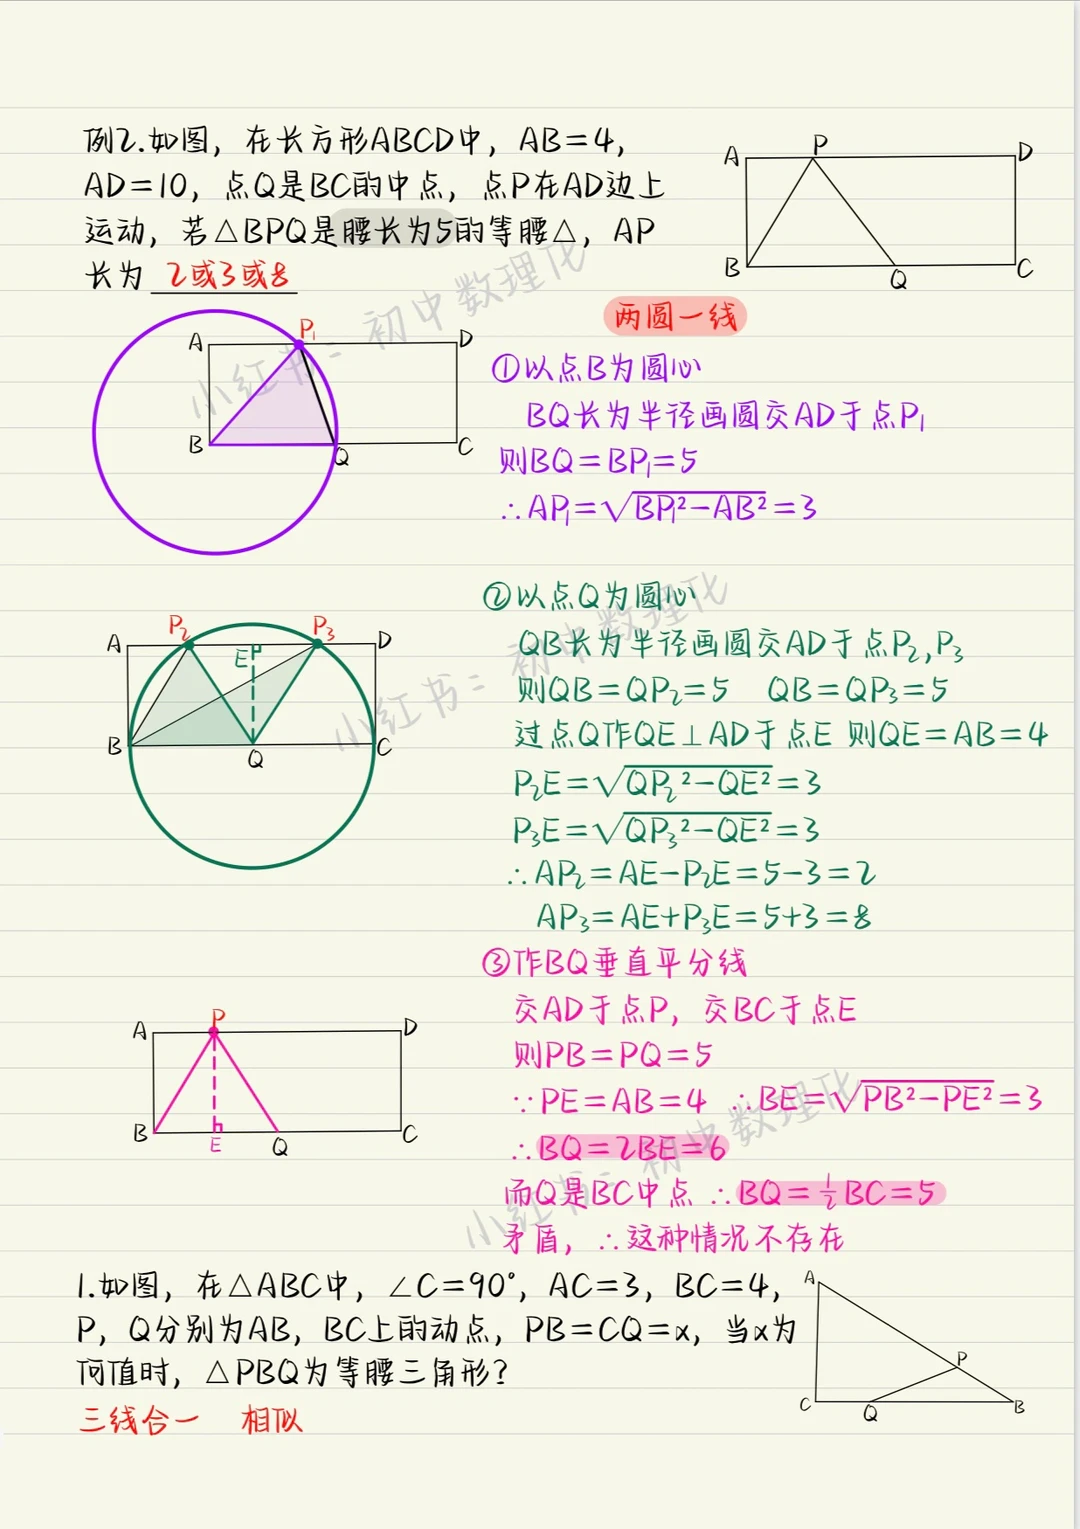 例2.如图，在长方形ABCD中，AB=4，
AD=10，点Q是BC的中点，点P在AD边上
运动，若△BPQ是腰长为5的等腰△，AP
长为 2或3或8
A P D
B Q C
两圆一线
A P₁ D
B Q C
①以点B为圆心
BQ长为半径画圆交AD于点P₁
则BQ=BP₁=5
∴AP₁=√BP₁²-AB²=3
②以点Q为圆心
QB长为半径画圆交AD于点P₂,P₃
则QB=QP₂=5 QB=QP₃=5
过点Q作QE⊥AD于点E 则QE=AB=4
P₂E=√QP₂²-QE²=3
P₃E=√QP₃²-QE²=3
∴AP₂=AE-P₂E=5-3=2
AP₃=AE+P₃E=5+3=8
A P₂ E P₃ D
B Q C
③作BQ垂直平分线
交AD于点P，交BC于点E
则PB=PQ=5
∵PE=AB=4 ∴BE=√PB²-PE²=3
∴BQ=2BE=6
而Q是BC中点 ∴BQ=½BC=5
矛盾，∴这种情况不存在
A P D
B E Q C
1.如图，在△ABC中，∠C=90°，AC=3，BC=4，
P，Q分别为AB，BC上的动点，PB=CQ=x，当x为
何值时，△PBQ为等腰三角形?
三线合一 相似
A
P
C Q B
小红书：初中数理化
小红书：初中数理化
小红书：初中数理化